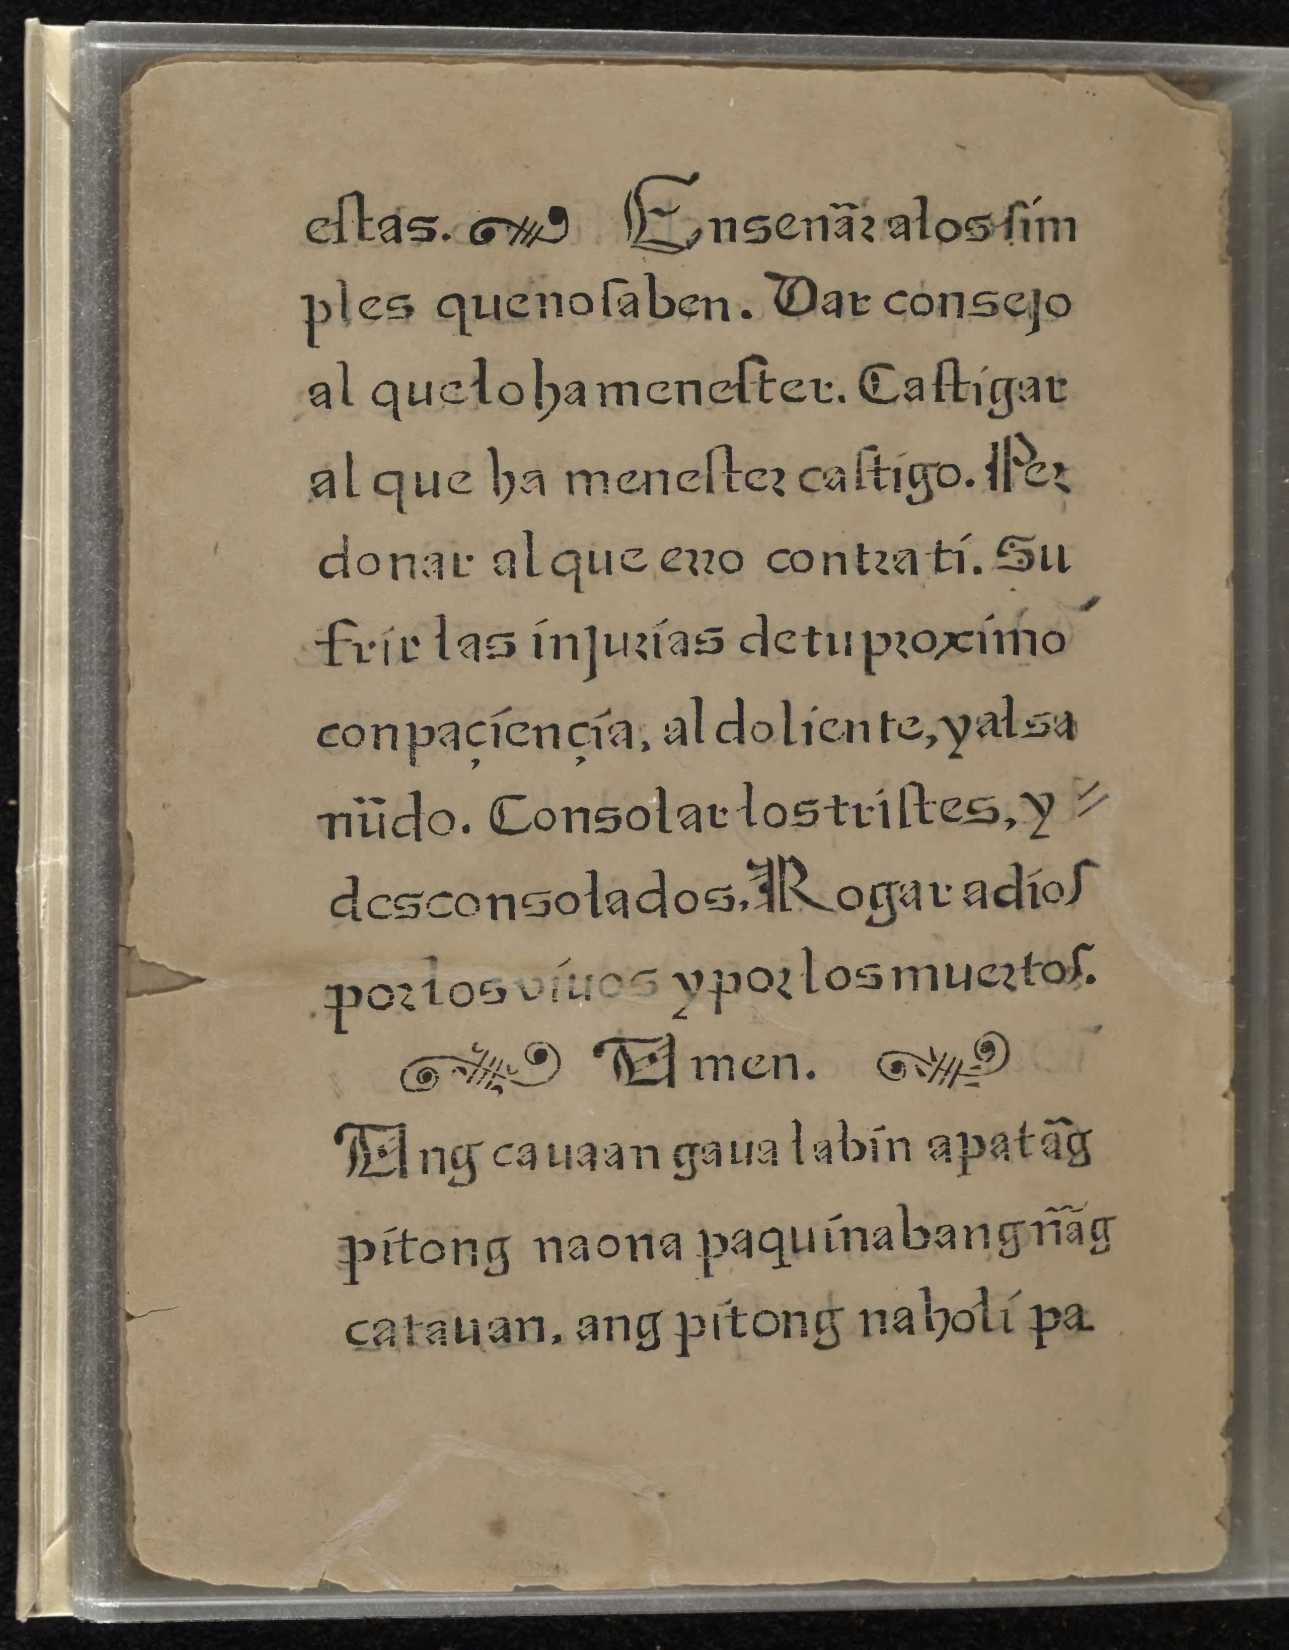 eſtas. Ensenãr alos ſim
ples que no ſaben. Dar consejo
al que lo ha meneſter. Caſtigar
al que ha meneſter caſtigo. Per
donar al que erro contra ti. Su
frir las injurias de tu proximo
con paçiençia, al doliente, y al sa
nudo. Consolar los triſtes, y
desconsolados. Rogar a dioſ
por los viuos y por los muertoſ.
Amen.
Ang cauaan gaua labin apatãg
pitong naona paquinabang ñãg
catauan. ang pitong naholi pa